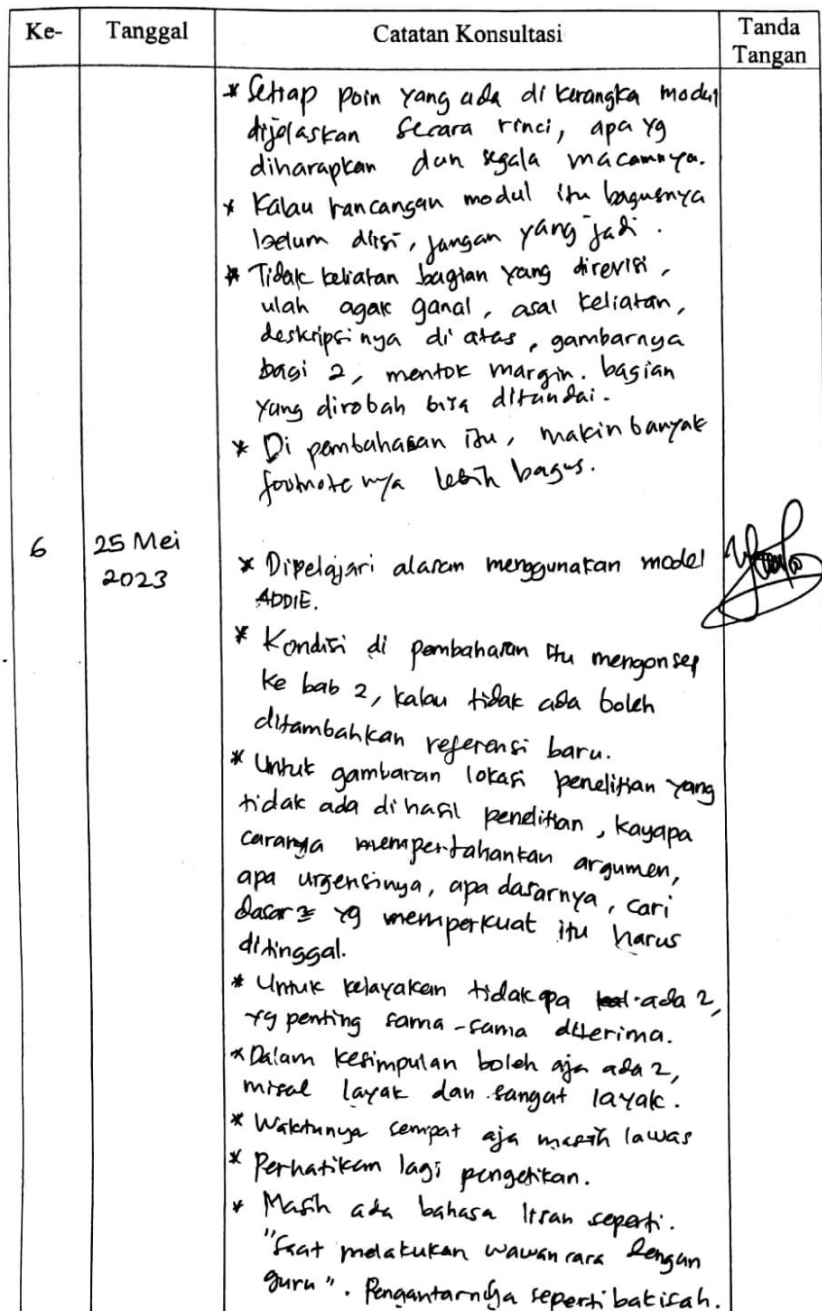 Ke-
Tanggal
Catatan Konsultasi
Tanda
Tangan
6
25 Mei
2023
* Setiap poin yang ada di kerangka modul
dijelaskan secara rinci, apa yg
diharapkan dan segala macamnya.
* Kalau rancangan modul itu bagusnya
belum diisi, jangan yang jadi.
* Tidak keliatan bagian yang direvisi,
ulah agak ganal, asal keliatan,
deskripsinya di atas, gambarnya
bagi 2, mentok margin. bagian
yang dirobah bisa ditandai.
* Di pembahasan itu, makin banyak
footnote nya lebih bagus.
* Dipelajari alasan menggunakan model
ADDIE.
* Kondisi di pembahasan itu mengonsep
ke bab 2, kalau tidak ada boleh
ditambahkan referensi baru.
* Untuk gambaran lokasi penelitian yang
tidak ada di hasil penelitian, kayapa
caranya mempertahankan argumen,
apa urgensinya, apa dasarnya, cari
dasar2 yg memperkuat itu harus
ditinggal.
* Untuk kelayakan tidak apa ada 2,
yg penting sama-sama diterima.
* Dalam kesimpulan boleh aja ada 2,
misal layak dan sangat layak.
* Waktunya sempat aja masih lawas
* Perhatikan lagi pengetikan.
* Masih ada bahasa lisan seperti.
"Saat melakukan wawancara dengan
guru". Pengantarnya seperti bakisah.